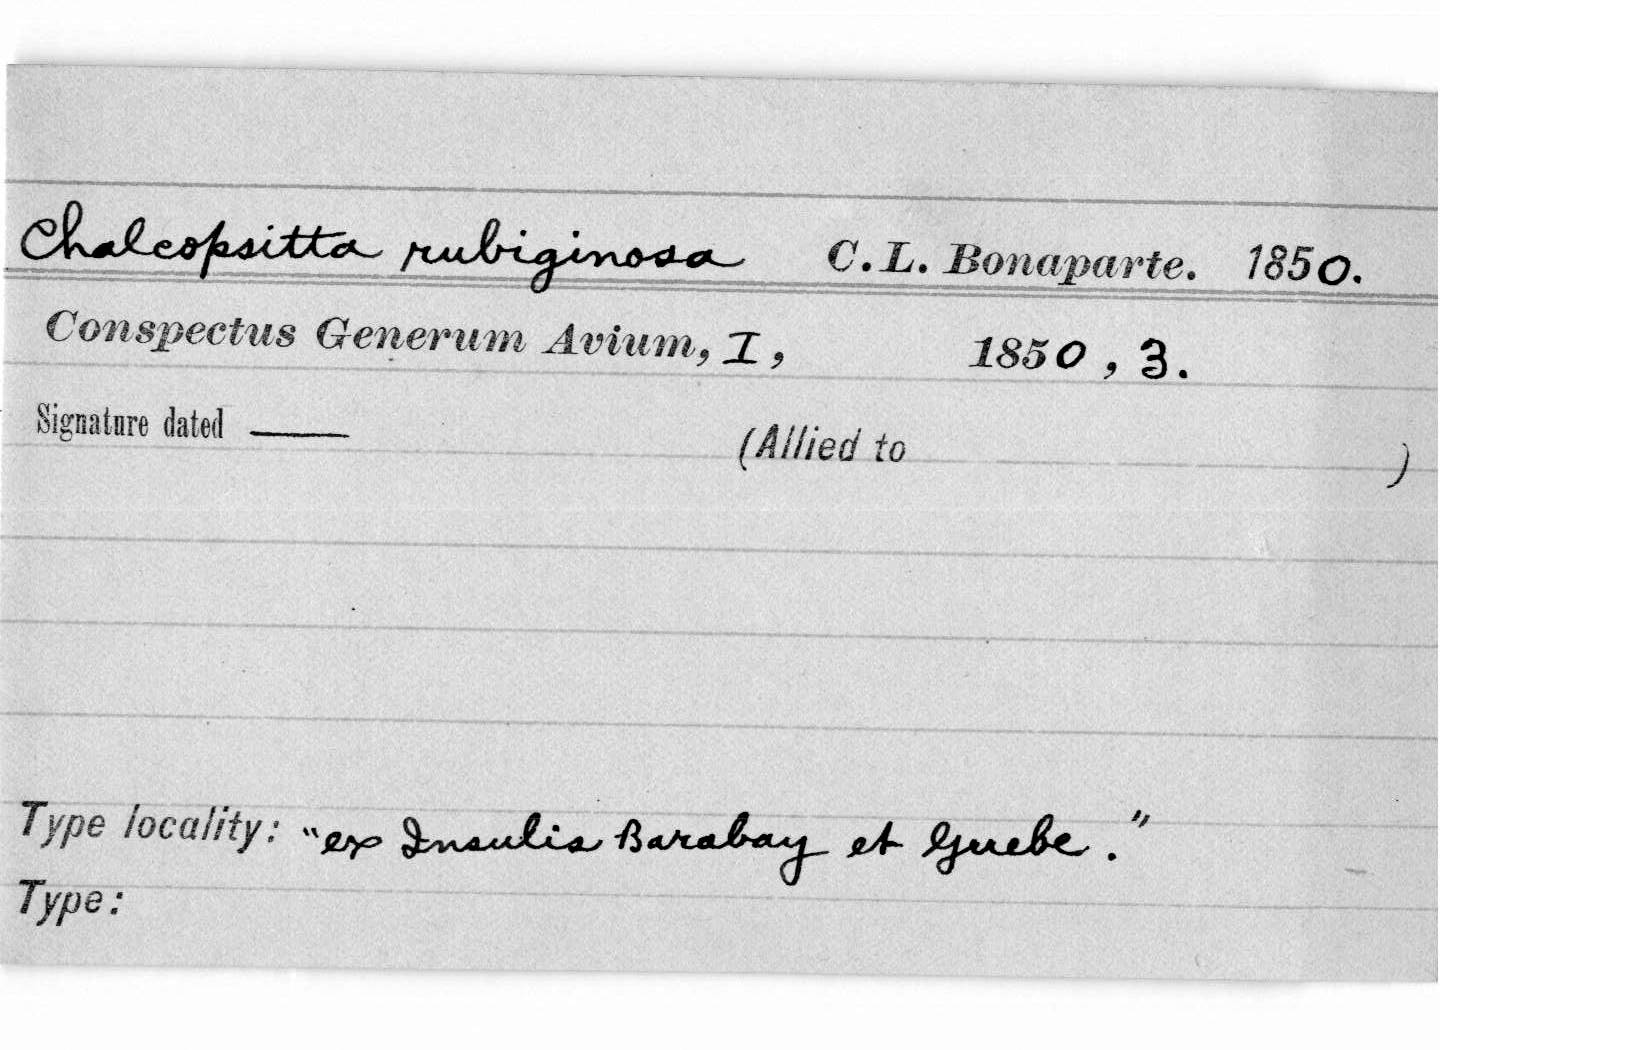 Chalcopsitta rubiginosa C. L. Bonaparte. 1850.
Conspectus Generum Avium, I, 1850, 3.
Signature dated ———
(Allied to )
Type locality: "ex Insulis Barabay et Guebe."
Type: